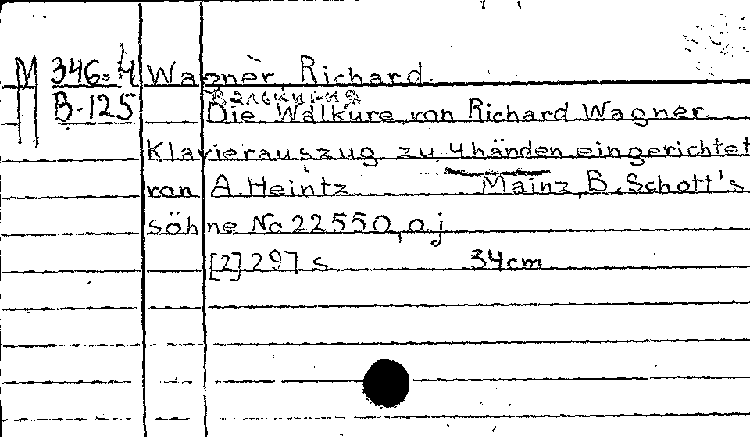 M 346.4 Wagner, Richard.
B-125 Die Walkure von Richard Wagner
Klavierauszug zu 4 händen eingerichtet
von A. Heintz Mainz, B. Schott's
söhne No 22550, o j
[2] 297 s 34cm